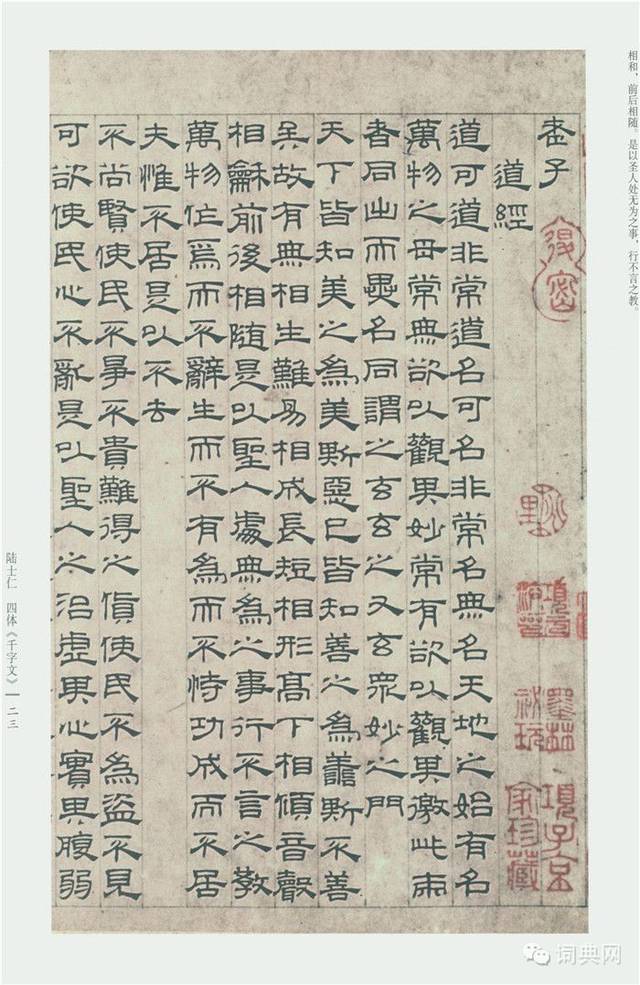 相和，前后相随。是以圣人处无为之事，行不言之教。
老子
道經
道可道非常道名可名非常名無名天地之始有名
萬物之母常無欲以觀其妙常有欲以觀其徼此兩
者同出而異名同謂之玄玄之又玄眾妙之門
天下皆知美之為美斯惡已皆知善之為善斯不善
矣故有無相生難易相成長短相形高下相傾音聲
相龢前後相隨是以聖人處無為之事行不言之教
萬物作焉而不辭生而不有為而不恃功成而不居
夫惟不居是以不去
不尚賢使民不爭不貴難得之貨使民不為盜不見
可欲使民心不亂是以聖人之治虛其心實其腹弱
墨林祕玩
項子京家珍藏
陆士仁 四体《千字文》 二三
词典网